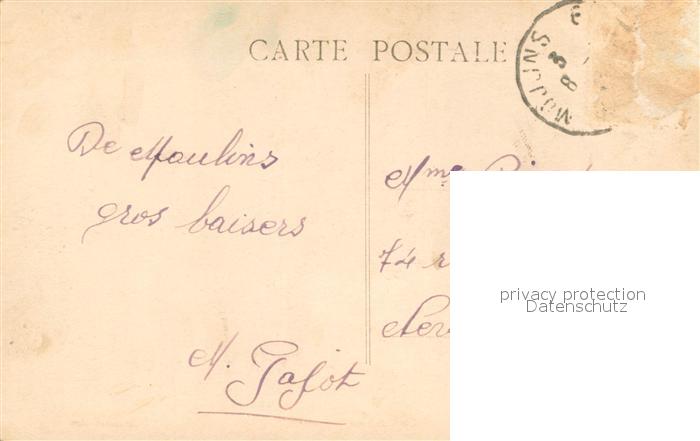 CARTE POSTALE
MOULINS
8
De Moulins
gros baisers
M. Gafot
Mme
74 r
privacy protection
Datenschutz